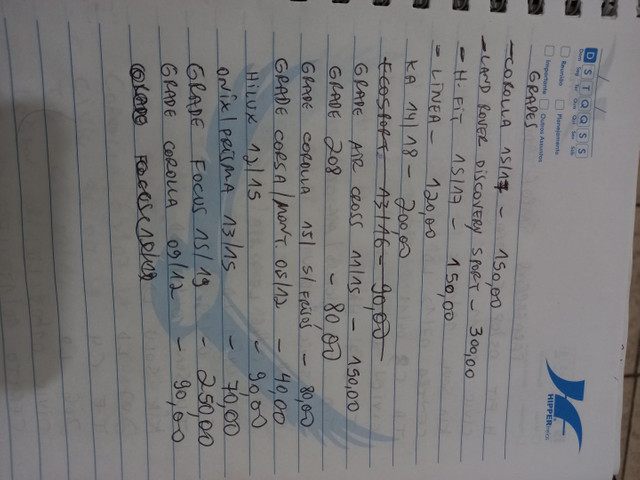 D S T Q Q S S
Reunião
Planejamento
Importante
Outros Assuntos
HIPPER
GRADES
- COROLLA 15/17 - 150,00
- LAND ROVER DISCOVERY SPORT - 300,00
- H. FIT 15/17 - 150,00
- LINEA - 120,00
KA 14/18 - 200,00
ECOSPORT 13/16 - 90,00
GRADE AIR CROSS 11/15 - 150,00
GRADE 208 - 80,00
GRADE COROLLA 15/ S/FRISOS - 80,00
GRADE CORSA/MONT. 08/12 - 40,00
HILUX 12/15 - 90,00
ONIX/PRISMA 13/15 - 70,00
GRADE FOCUS 15/19 - 250,00
GRADE COROLLA 09/12 - 90,00